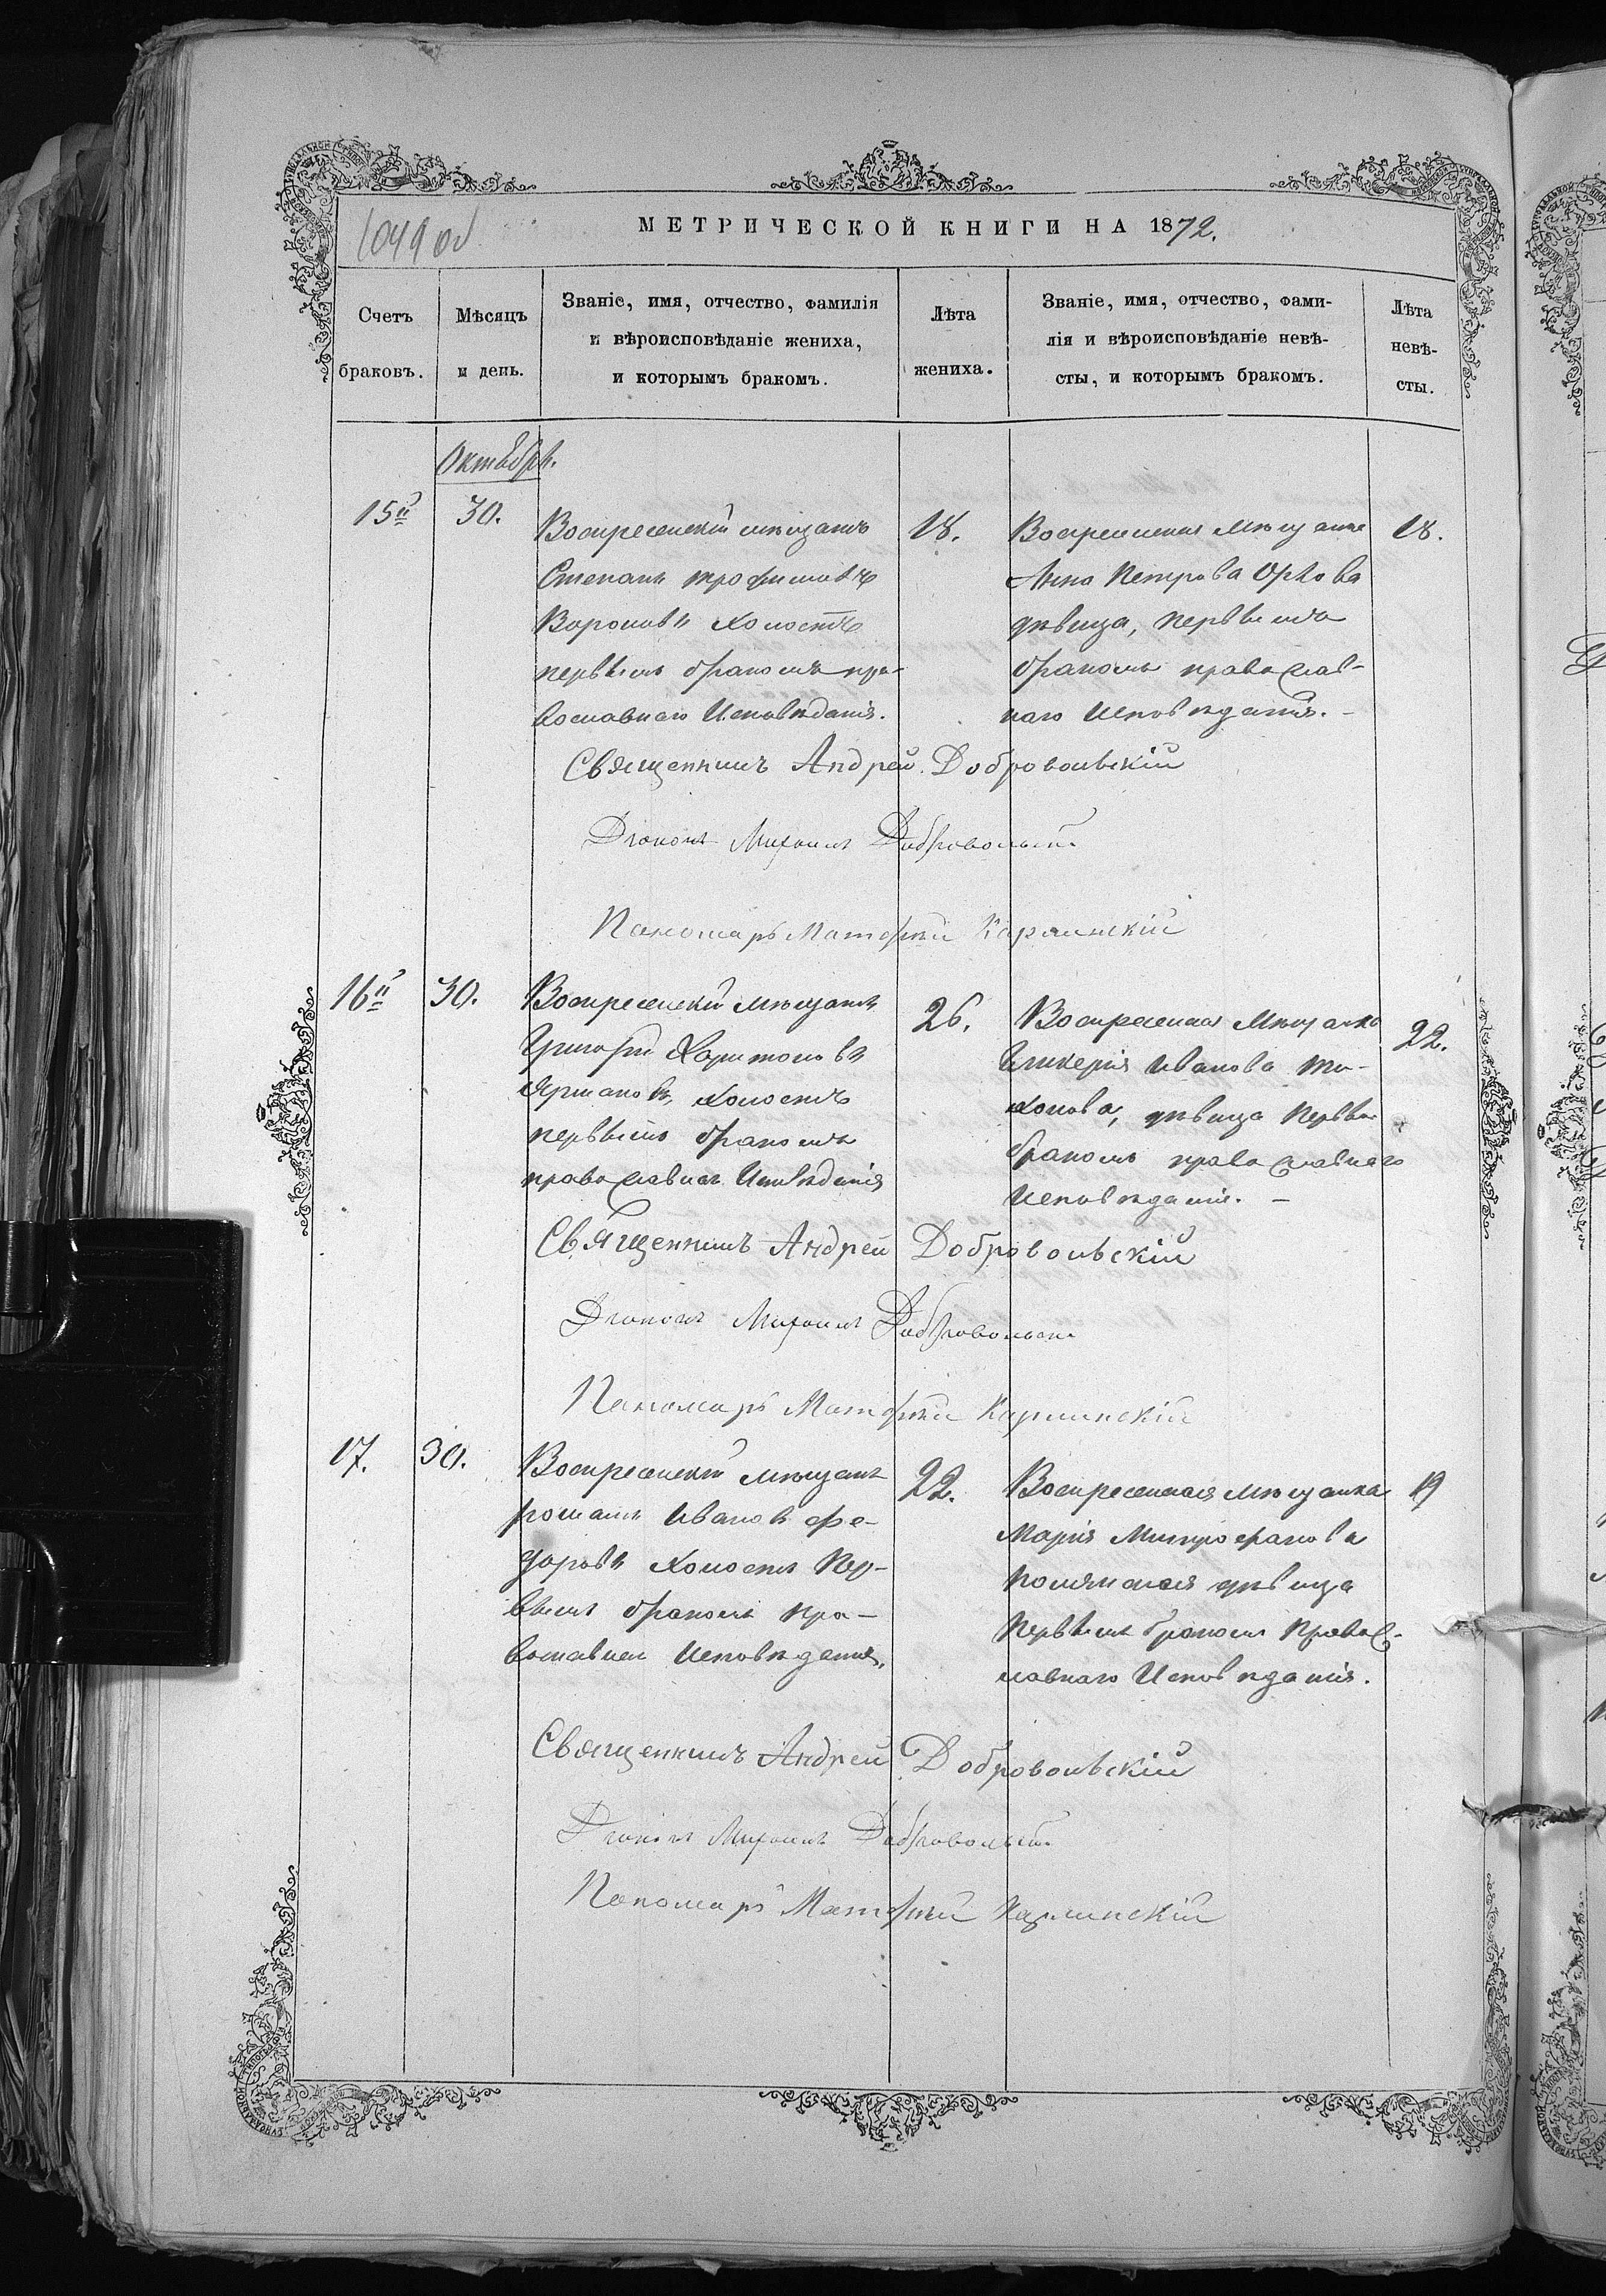 МЕТРИЧЕСКОЙ КНИГИ НА 1872.
1049 об
Счетъ браковъ.
Мѣсяцъ и день.
Званіе, имя, отчество, фамилія
и вѣроисповѣданіе жениха,
и которымъ бракомъ.
Лѣта жениха.
Званіе, имя, отчество, фами-
лія и вѣроисповѣданіе невѣ-
сты, и которымъ бракомъ.
Лѣта невѣ-
сты.
Октябрь.
15й
30.
Воскресенскій мѣщанъ
Степанъ трофимовъ
Вороновъ холостъ
первымъ бракомъ пра-
вославнаго Исповѣданія.
18.
Воскресенская Мѣщанка
Анна Петрова Орлова
дѣвица, первымъ
бракомъ православ-
наго Исповѣданія.-
18.
Священникъ Андрей Добровольскій
Діаконъ Михаилъ Добровольскій
Пономарь Матфей Карлинскій
16й
30.
Воскресенскій мѣщанъ
Григорій Харитоновъ
холостъ
первымъ бракомъ
православнаго Исповѣданія
26.
Воскресенская Мѣщанка
Гликерія Иванова ти-
хонова, дѣвица первымъ
бракомъ православнаго
Исповѣданія. -
22.
Священникъ Андрей Добровольскій
Діаконъ Михаилъ Добровольскій
Пономарь Матфей Карлинскій
17.
30.
Воскресенскій мѣщанъ
романъ Ивановъ фе-
доровъ холостъ пер-
вымъ бракомъ пра-
вославнаго Исповѣданія.
22.
Воскресенская мѣщанка
Марія Митрофанова
дѣвица
первымъ бракомъ Правос-
лавнаго Исповѣданія.
19
Священникъ Андрей Добровольскій
Діаконъ Михаилъ Добровольскій
Пономарь Матфей Карлинскій